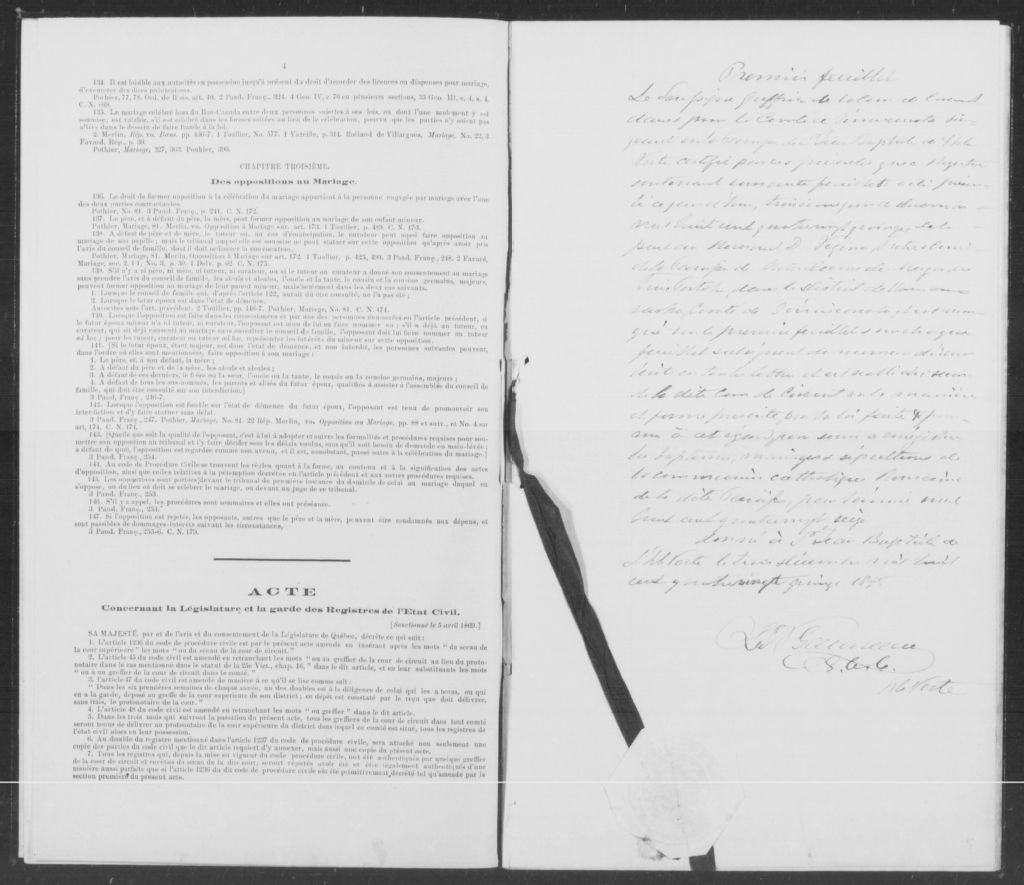 4
134. Il est loisible aux autorités en possession jusqu'à présent du droit d'accorder des licences ou dispenses pour mariage,
d'exempter des dites publications.
C. N. 169.
135. Le mariage célébré hors du Bas-Canada entre deux personnes sujettes à ses lois, ou dont l'une seulement y est
soumise, est valable, s'il est célébré dans les formes usitées au lieu de la célébration, pourvu que les parties n'y soient pas
allées dans le dessein de faire fraude à la loi.
2. Merlin, Rép. vo. Bans. pp. 446-7. 1 Toullier, No. 577. 1 Vazeille, p. 314. Rolland de Villargues, Mariage, No. 22, 3
Favard, Rép., p. 39.
Pothier, Mariage, 227, 363. Pouhier, 390.
CHAPITRE TROISIÈME.
Des oppositions au Mariage.
136. Le droit de former opposition à la célébration du mariage appartient à la personne engagée par mariage avec l'une
des deux parties contractantes.
Pothier, No. 81. 3 Pand. Franç., p. 241. C. N. 172.
137. Le père, et à défaut du père, la mère, peut former opposition au mariage de son enfant mineur.
Pothier, Mariage, 81. Merlin, vo. Opposition à Mariage sur. art. 173. 1 Toullier, p. 489. C. N. 173.
138. A défaut de père et de mère, le tuteur ou, au cas d'émancipation, le curateur peut aussi faire opposition au
mariage de son pupille; mais le tribunal auquel elle est soumise ne peut statuer sur cette opposition qu'après avoir pris
l'avis du conseil de famille, dont il doit ordonner la convocation.
Pothier, Mariage, 81. Merlin, Opposition à Mariage sur art. 172. 1 Toullier, p. 425, 490. 3 Pand. Franç., 248. 2 Favard,
Mariage, sec. 2, § 1, No. 3, p. 59. 1 Delv. p. 62. C. N. 175.
139. S'il n'y a ni père, ni mère, ni tuteur, ni curateur, ou si le tuteur ou curateur a donné son consentement au mariage
sans prendre l'avis du conseil de famille, les aïeuls et aïeules, l'oncle et la tante, le cousin et la cousine germains, majeurs,
peuvent former opposition au mariage de leur parent mineur, mais seulement dans les deux cas suivants.
1. Lorsque le conseil de famille qui, d'après l'article 122, aurait dû être consulté, ne l'a pas été;
2. Lorsque le futur époux est dans l'état de démence.
Autorités sous l'art. précédent. 2 Toullier, pp. 446-7. Pothier, Mariage, No. 81. C. N. 174.
140. Lorsque l'opposition est faite dans les circonstances et par une des personnes énoncées en l'article précédent, si
le futur époux mineur n'a ni tuteur, ni curateur, l'opposant est tenu de lui en faire nommer un; s'il a déjà un tuteur, ou
curateur, qui ait déjà consenti au mariage sans consulter le conseil de famille, l'opposant doit lui faire nommer un tuteur
ad hoc; pour les tuteur, curateur ou tuteur ad hoc, représenter les intérêts du mineur sur cette opposition.
141. [Si le futur époux, étant majeur, est dans l'état de démence, et non interdit, les personnes suivantes peuvent,
dans l'ordre où elles sont mentionnées, faire opposition à son mariage:
1. Le père, et, à son défaut, la mère;
2. A défaut du père et de la mère, les aïeuls et aïeules;
3. A défaut de ces derniers, le frère ou la sœur, l'oncle ou la tante, le cousin ou la cousine germains, majeurs;
4. A défaut de tous les sus-nommés, les parents et alliés du futur époux, qualifiés à assister à l'assemblée du conseil de
famille, qui doit être consulté sur son interdiction.]
3 Pand, Franç., 246-7.
142. Lorsque l'opposition est fondée sur l'état de démence du futur époux, l'opposant est tenu de promouvoir son
interdiction et d'y faire statuer sans délai.
3 Pand. Franç., 247. Pothier, Mariage, No. 81. 22 Rép. Merlin, vo. Opposition au Mariage, pp. 88 et suiv., et No. 4 sur
art, 174. C. N. 174.
143. [Quelle que soit la qualité de l'opposant, c'est à lui à adopter et suivre les formalités et procédures requises pour sou-
mettre son opposition au tribunal et l'y faire décider sous les délais voulus, sans qu'il soit besoin de demande en main-levée;
à défaut de quoi, l'opposition est regardée comme non avenue, et il est, nonobstant, passé outre à la célébration du mariage.]
3 Pand. Franç., 254.
144. Au code de Procédure Civile se trouvent les règles quant à la forme, au contenu et à la signification des actes
d'opposition, ainsi que celles relatives à la péremption décrétée en l'article précédent et aux autres procédures requises.
145. Les oppositions sont portées devant le tribunal de première instance du domicile de celui au mariage duquel on
s'oppose, ou du lieu où doit se célébrer le mariage, ou devant un juge de ce tribunal.
3 Pand. Franç., 253.
146. S'il y a appel, les procédures sont sommaires et elles ont préséance.
3 Pand. Franç., 253.
147. Si l'opposition est rejetée, les opposants, autres que le père et la mère, peuvent être condamnés aux dépens, et
sont passibles de dommages-intérêts suivant les circonstances.
3 Pand. Franç., 255-6. C. N. 179.
ACTE
Concernant la Législature et la garde des Registres de l'Etat Civil.
[Sanctionné le 5 avril 1869.]
SA MAJESTÉ, par et de l'avis et du consentement de la Législature de Québec, décrète ce qui suit:
1. L'article 1236 du code de procédure civile est par le présent acte amendé en insérant après les mots "du sceau de
la cour supérieure" les mots "ou du sceau de la cour de circuit."
2. L'article 45 du code civil est amendé en retranchant les mots "ou au greffier de la cour de circuit au lieu du proto-
notaire dans le cas mentionné dans le statut de la 25e Vict., chap. 16," dans le dit article, et en leur substituants les mots
"ou à un greffier de la cour de circuit dans le comté."
3. l'article 47 du code civil est amendé de manière à ce qu'il se lise comme suit:
"Dans les six premières semaines de chaque année, un des doubles est à la diligence de celui qui les a tenus, ou qui
en a la garde, déposé au greffe de la cour supérieure de son district; ce dépôt est constaté par le reçu que doit délivrer,
sans frais, le protonotaire de la cour."
4. L'article 48 du code civil est amendé en retranchant les mots "ou greffier" dans le dit article.
5. Dans les trois mois qui suivront la passation du présent acte, tous les greffiers de la cour de circuit dans tout comté
seront tenus de délivrer au protonotaire de la cour supérieure du district dans lequel ce comté est situé, tous les registres de
l'état civil alors en leur possession.
6. Au double du registre mentionné dans l'article 1237 du code de procédure civile, sera attaché non seulement une
copie des parties du code civil que le dit article requiert d'y annexer, mais aussi une copie du présent acte.
7. Tous les registres qui, depuis la mise en vigueur du code de procédure civile, ont été authentiqués par quelque greffier
de la cour de circuit et revêtus du sceau de la dite cour, seront réputés avoir été et être légalement authentiqués d'une
manière aussi parfaite que si l'article 1236 du dit code de procédure civile eût été primitivement décrété tel qu'amendé par la
section première du présent acte.
Premier feuillet
Le Soussigné Greffier de la Cour de Circuit
dans et pour le Comté de Témiscouata sié-
geant en la Paroisse de St Jean Baptiste de l'Isle
Verte certifie par ces présentes que ce Registre
contenant cinquante feuillets celui présen-
té ce jourd'hui, troisième jour de décembre
mil huit cent quatrevingt quinze de la
part du Révérend
de la Paroisse de
dans le District de Kamouras-
ka et le Comté de Témiscouata, est numé-
roté sur le premier feuillet et sur chaque
feuillet subséquent du numéro d'icelui
écrit en toute lettre et est scellé du sceau
de la dite Cour de Circuit en la manière
et forme prescrite par la loi faite & pour-
vu à cet égard pour servir à enregistrer
les Baptêmes, mariages et sépultures de
la communion catholique Romaine
de la dite Paroisse pour l'année mil
huit cent quatrevingt seize
Donné à St Jean Baptiste de
l'Isle Verte le trois décembre mil huit
cent quatrevingt quinze 1895
G. C. C.
Isle Verte